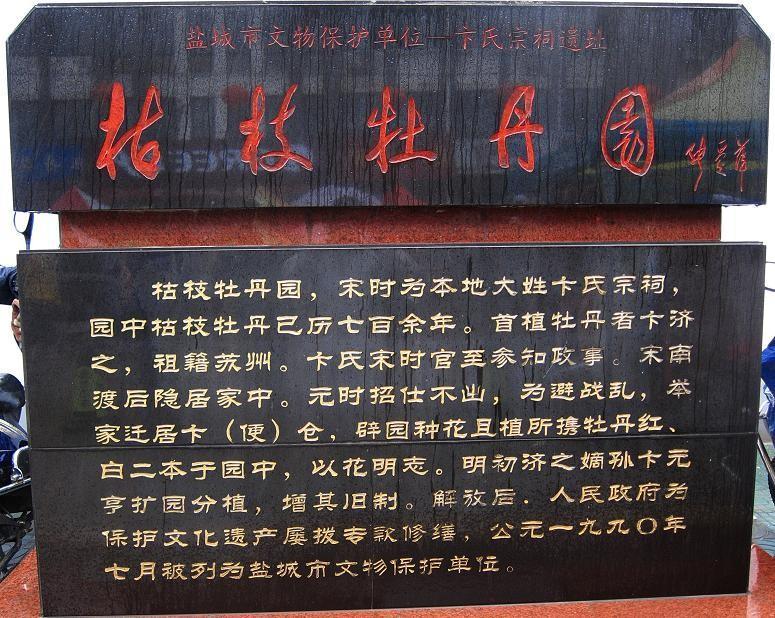 盐城市文物保护单位—卞氏宗祠遗址
枯枝牡丹园
枯枝牡丹园，宋时为本地大姓卞氏宗祠，
园中枯枝牡丹已历七百余年。首植牡丹者卞济
之，祖籍苏州。卞氏宋时官至参知政事。宋南
渡后隐居家中。元时招仕不出，为避战乱，举
家迁居卞（便）仓，辟园种花且植所携牡丹红、
白二本于园中，以花明志。明初济之嫡孙卞元
亨扩园分植，增其旧制。解放后．人民政府为
保护文化遗产屡拨专款修缮，公元一九九〇年
七月被列为盐城市文物保护单位。